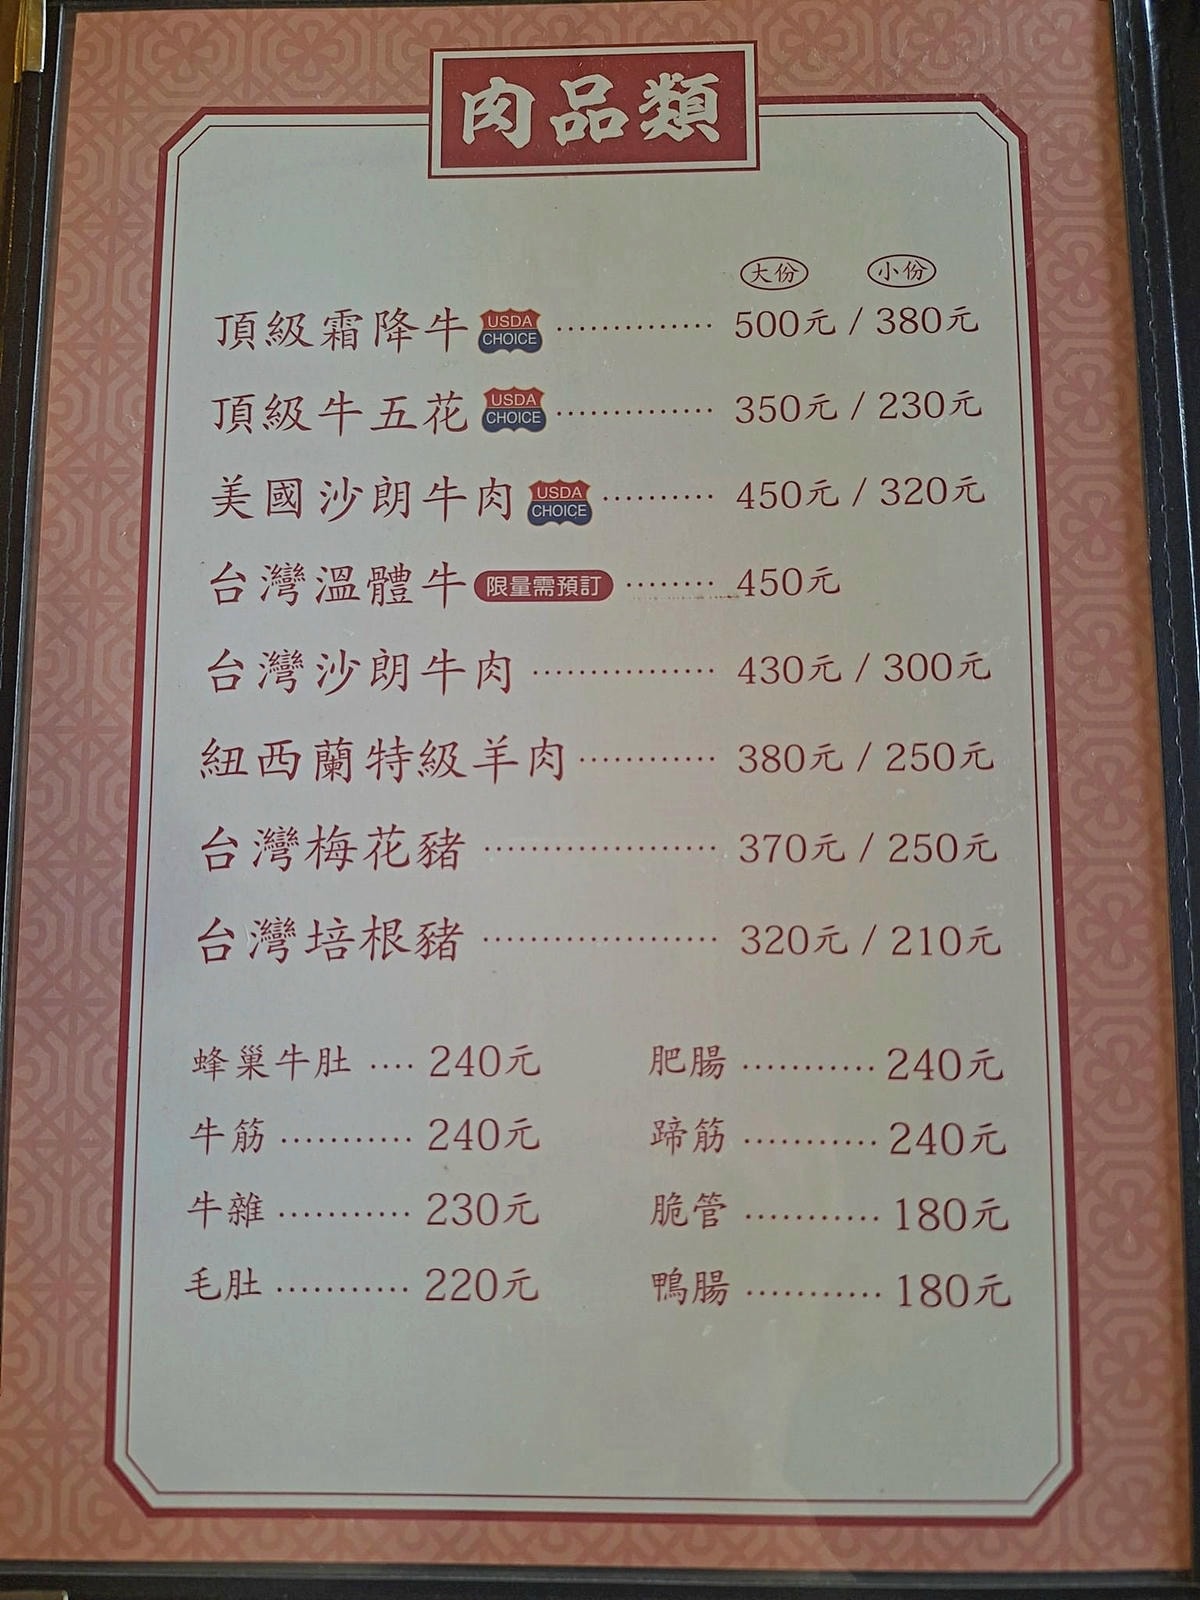 肉品類
大份 小份
頂級霜降牛 USDA CHOICE ·············· 500元 / 380元
頂級牛五花 USDA CHOICE ·············· 350元 / 230元
美國沙朗牛肉 USDA CHOICE ·········· 450元 / 320元
台灣溫體牛 限量需預訂 ········ 450元
台灣沙朗牛肉 ················ 430元 / 300元
紐西蘭特級羊肉 ············ 380元 / 250元
台灣梅花豬 ···················· 370元 / 250元
台灣培根豬 ···················· 320元 / 210元
蜂巢牛肚 ···· 240元 肥腸 ··········· 240元
牛筋 ··········· 240元 蹄筋 ··········· 240元
牛雜 ··········· 230元 脆管 ··········· 180元
毛肚 ··········· 220元 鴨腸 ··········· 180元